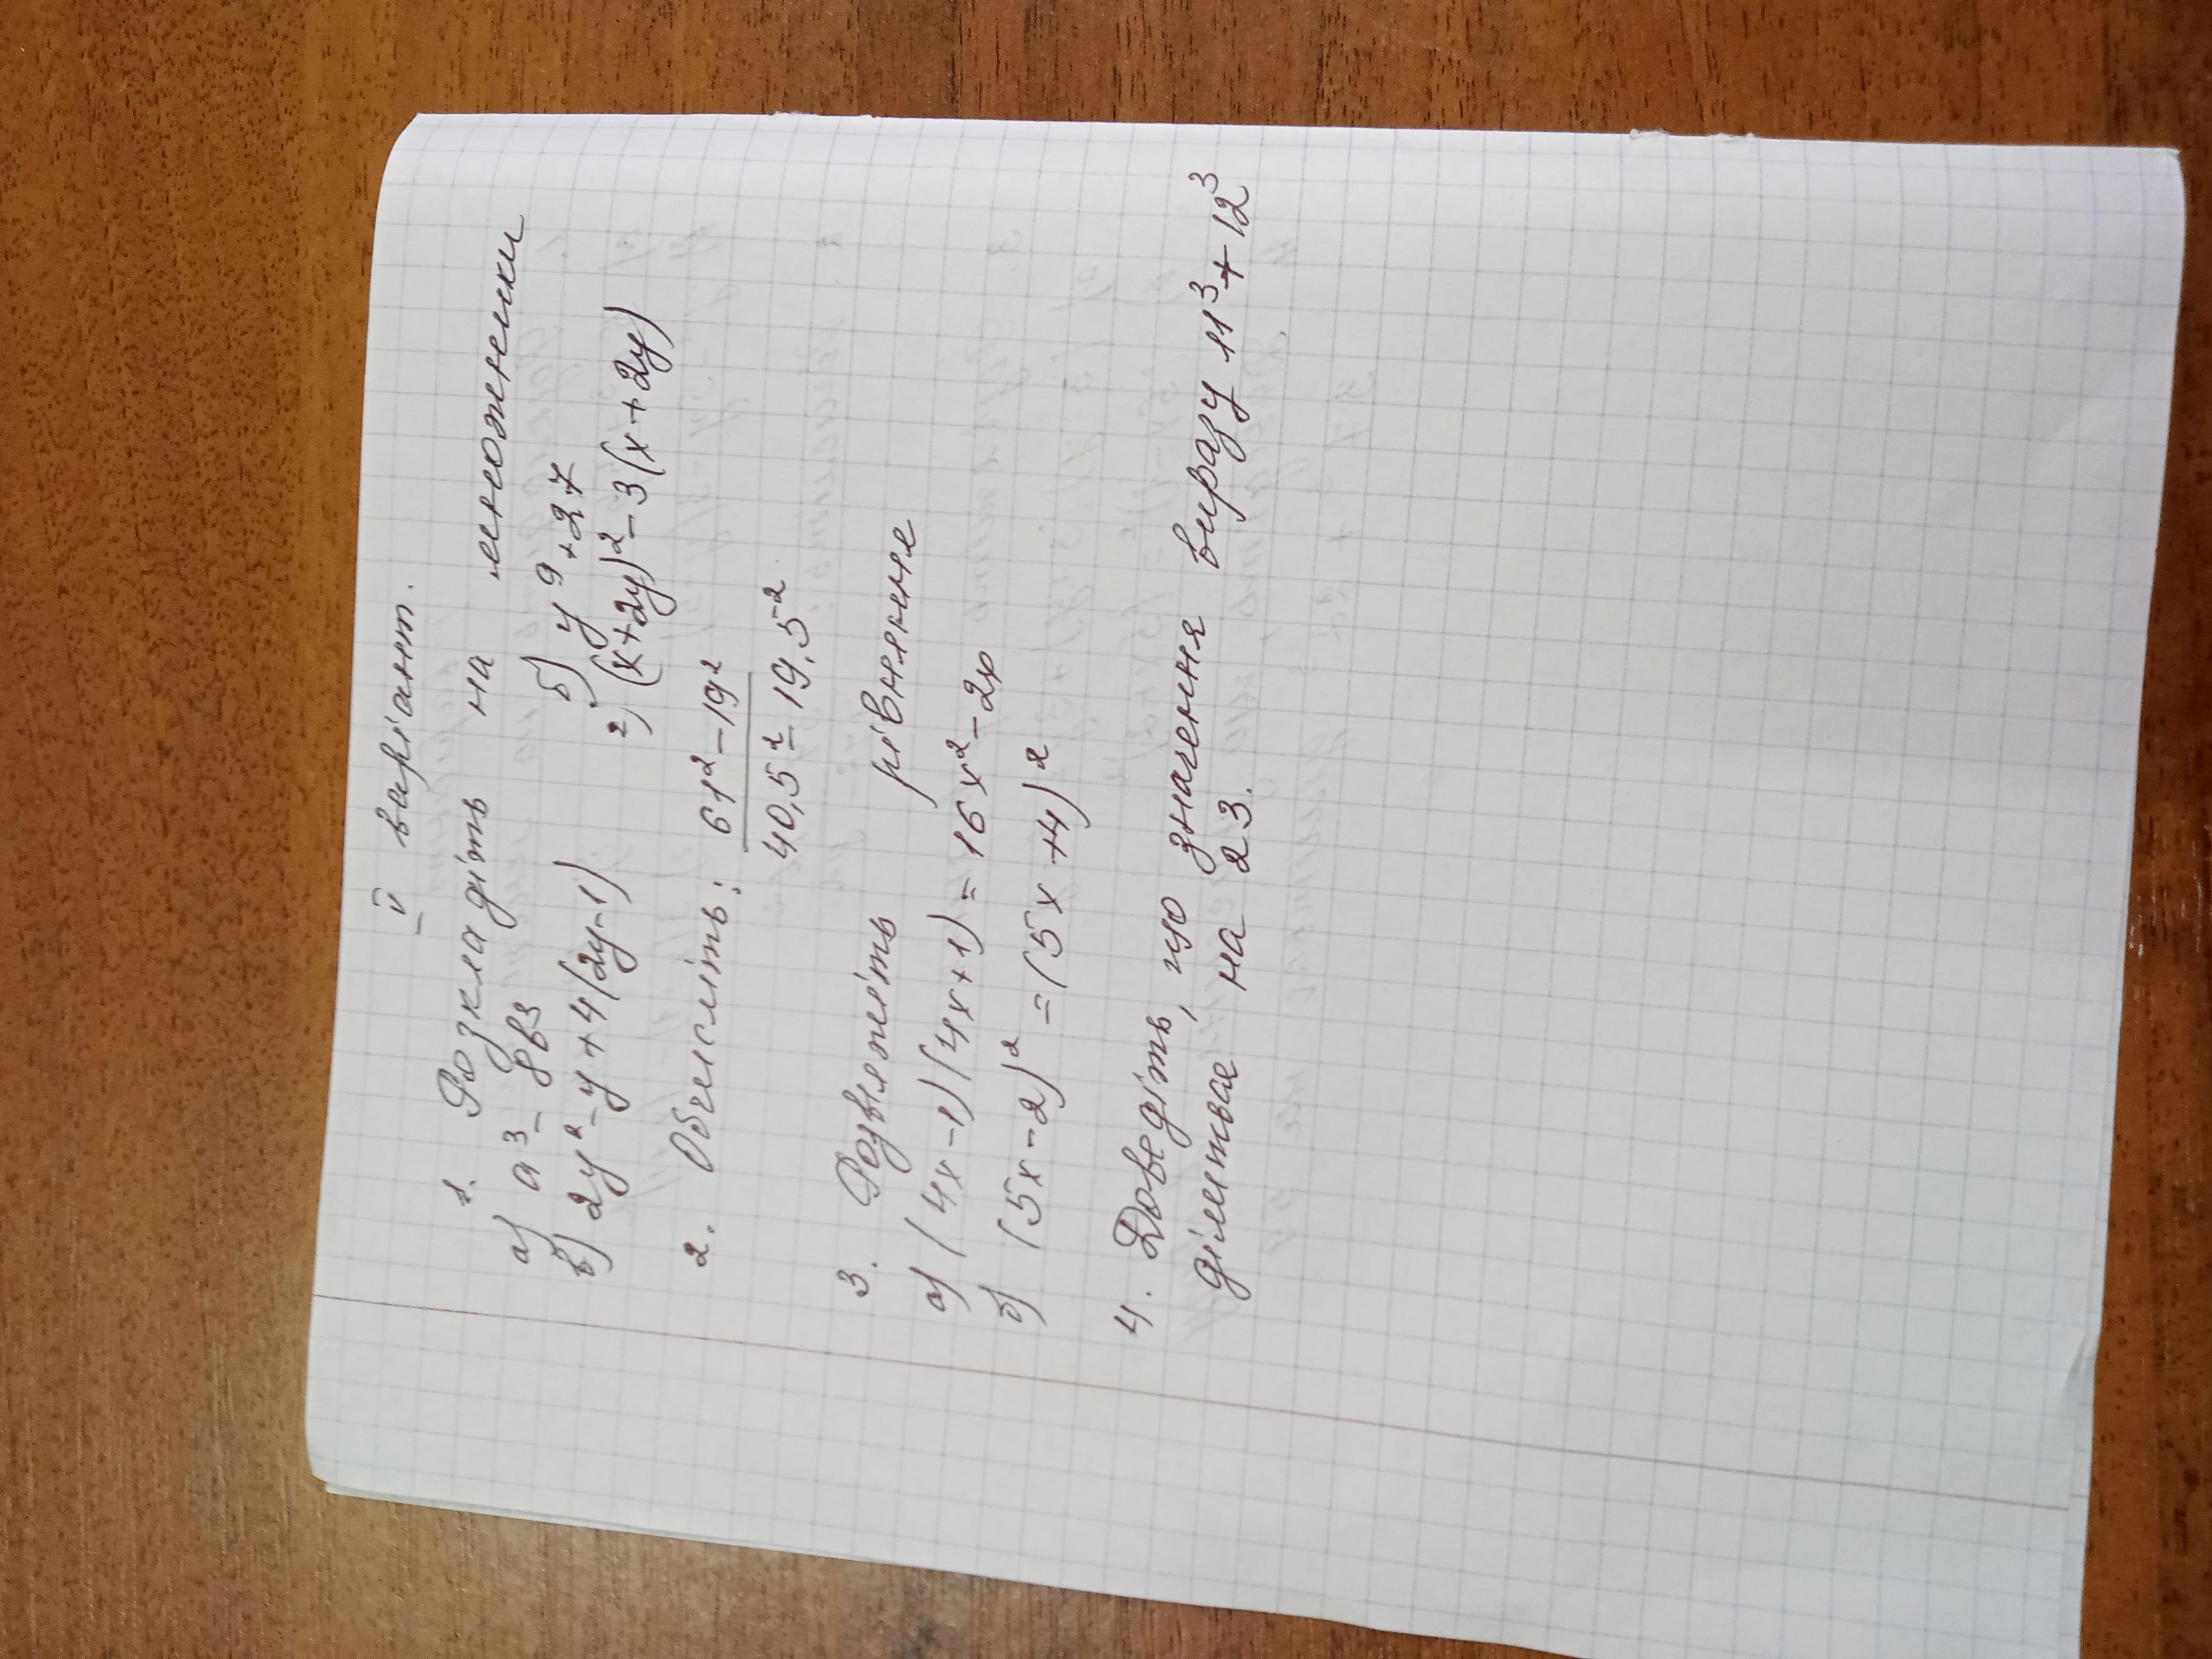 II варіант.
1. Розкладіть на множники
а) a³ - 8в3 б) y⁹ + 27
в) 2y² - y + 4(2y-1) г) (x+2y)² - 3(x+2y)
2. Обчисліть: 61² - 19²
40,5² - 19,5²
3. Розвяжіть рівняння
а) (4x-1)(4x+1) = 16x² - 2x
б) (5x-2)² = (5x+4)²
4. Доведіть, що значення виразу 11³ + 12³
ділиться на 23.